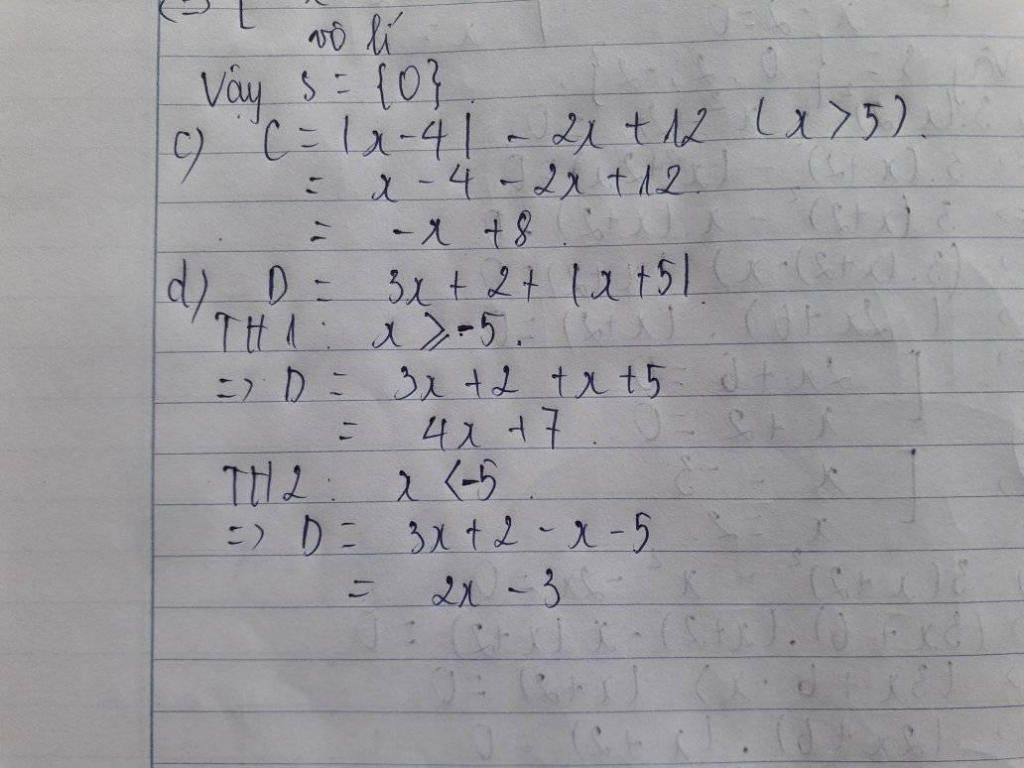 (=> [
vô lí
Vậy S = {0}.
c) C = |x - 4| - 2x + 12 (x > 5).
= x - 4 - 2x + 12.
= -x + 8.
d) D = 3x + 2 + |x + 5|.
TH1: x ⩾ -5.
=> D = 3x + 2 + x + 5
= 4x + 7.
TH2: x < -5.
=> D = 3x + 2 - x - 5
= 2x - 3